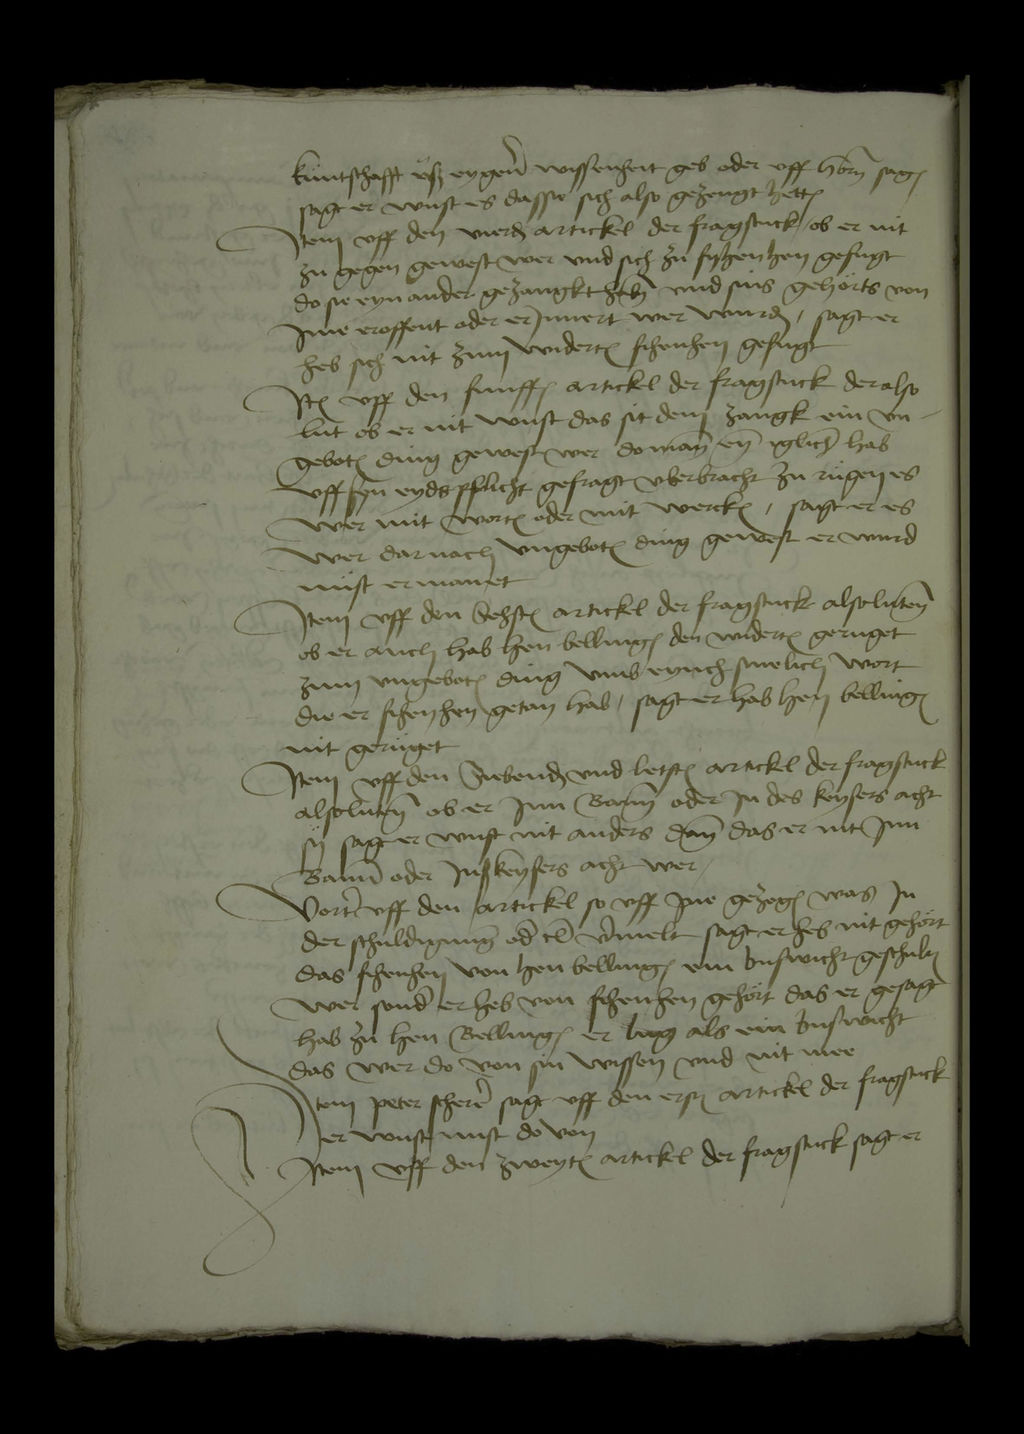 kuntschafft usz eygen wissenheit geb oder uff horn sagen
sagt er wust es dasse sich also gezeugt hett
Item uff den vierd artickel der fragstuck ob er nit
zu gegen gewest wer und sich zu gefugt
do sie eyn ander gezangkt und sins gehorts von
Ime eroffent oder erInnert wer wurd, sagt er
heb sich nit zum widert schenhen gefugt
Ite uff den funfften artickel der fragstuck der also
lut ob er nit wust das sit dem zangk ein un
gebot ding gewest wer do man ein yglich hab
uff syn eyds pflicht gefragt uberbracht zu rugen es
wer mit wort oder mit werck, sagt er es
wer dar nach ungebot ding gewest er wurd
nust ermanet
Item uff den sehst artickel der fragstuck also luten
ob er auch hab hen belling den widert geruget
zum ungebot ding umb eynich smelich wort
die er schenhen getan hab, sagt er hab hen belling
nit geruget
Item uff den siebend und letst artickel der fragstuck
also luten ob er Inn Bann oder In des keysers acht
sy sagt er wust nit anders dan das er nit Inn
Bann oder Ins keysers acht wer
Vort uff den artickel so uff Ine gezogen was In
der schuldigung sagt er heb nit gehort
das schenhen von hen belling ein boswicht geschult
wer sond er heb von schenhen gehort das er gesagt
hab zu hen Belling er lug als ein boswicht
das wer do von sin wissen und nit mee
Item peter scherer sagt uff den erst artickel der fragstuck
er wust nust do von
Item uff den zweyt artickel der fragstuck sagt er